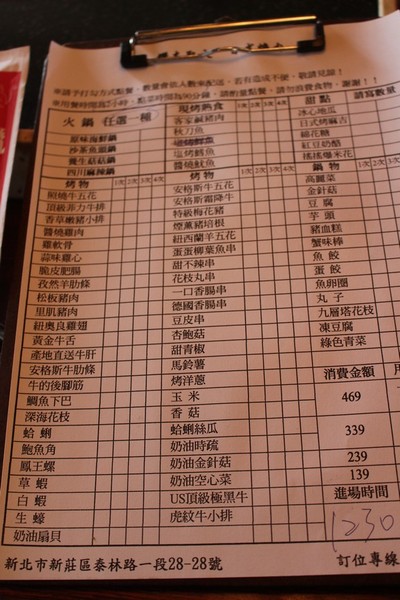 ※請予打勾方式點餐，數量會依人數來配送，若有造成不便，敬請見諒！
※用餐時間為2小時，點菜時間為90分鐘，請酌量點餐，請勿浪費食物，謝謝！！
火鍋 任選一種
原味海鮮鍋
沙茶魚頭鍋
養生菇菇鍋
四川麻辣鍋
烤物 1次 2次 3次 4次
照燒牛五花
頂級菲力牛排
香草嫩豬小排
醬燒雞肉
雞軟骨
蒜味雞心
脆皮肥腸
孜然羊肋條
松板豬肉
里肌豬肉
紐奧良雞翅
黃金牛舌
產地直送牛肝
安格斯牛肋條
牛的後腳筋
鯛魚下巴
深海花枝
蛤蜊
鮑魚角
鳳王螺
草蝦
白蝦
生蠔
奶油扇貝
現烤熟食 1次 2次 3次 4次
客家鹹豬肉
秋刀魚
塩烤鯖魚
醬燒魷魚
烤物 1次 2次 3次 4次
安格斯牛五花
安格斯霜降牛
特級梅花豬
煙薰豬培根
紐西蘭羊五花
蛋蛋柳葉魚串
甜不辣串
花枝丸串
一口香腸串
德國香腸串
豆皮串
杏鮑菇
甜青椒
馬鈴薯
烤洋蔥
玉米
香菇
蛤蜊絲瓜
奶油時疏
奶油金針菇
奶油空心菜
US頂級極黑牛
虎紋牛小排
甜點 請寫數量
冰心地瓜
日式烤麻吉
綿花糖
紅豆奶酷
搖搖爆米花
鍋物 1次 2次
高麗菜
金針菇
豆腐
芋頭
豬血糕
蟹味棒
魚餃
蛋餃
魚卵圈
丸子
九層塔花枝
凍豆腐
綠色青菜
消費金額
469
339
239
139
進場時間
1230
新北市新莊區泰林路一段28-28號 訂位專線